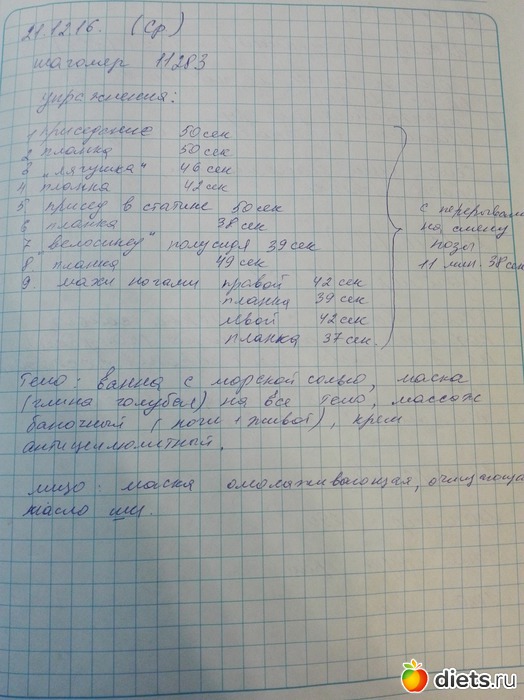 21.12.16. (Ср)
шагомер 11283
упражнения:
1 приседание 50 сек
2 планка 50 сек
3 "лягушка" 46 сек
4 планка 42 сек
5 присед в статике 50 сек
6 планка 38 сек
7 "велосипед" полусидя 39 сек
8 планка 49 сек
9 махи ногами правой 42 сек
планка 39 сек
левой 42 сек
планка 37 сек.
с перерывами
на смену
позы
11 мин. 38 сек
Тело: ванна с морской солью, маска
(глина голубая) на все тело, массаж
баночный (ноги + живот), крем
антицеллюлитный.
лицо: маска омолаживающая, очищающая
масло ши.
diets.ru